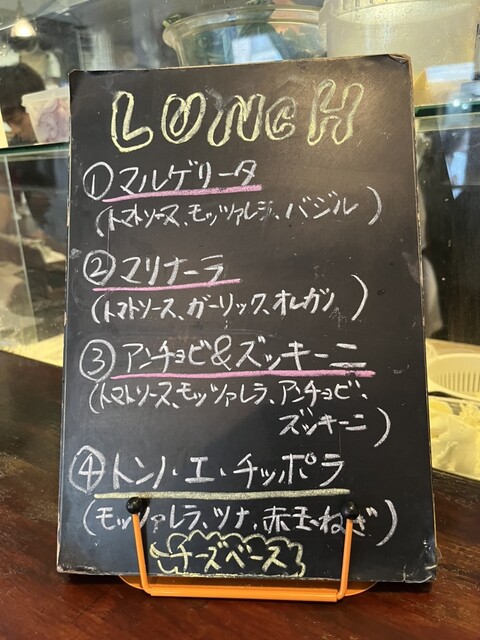 LUNCH
①マルゲリータ
(トマトソース、モッツァレラ、バジル)
②マリナーラ
(トマトソース、ガーリック、オレガノ)
③アンチョビ&ズッキーニ
(トマトソース、モッツァレラ、アンチョビ、
ズッキーニ)
④トンノ・エ・チッポラ
(モッツァレラ、ツナ、赤玉ねぎ)
チーズベース